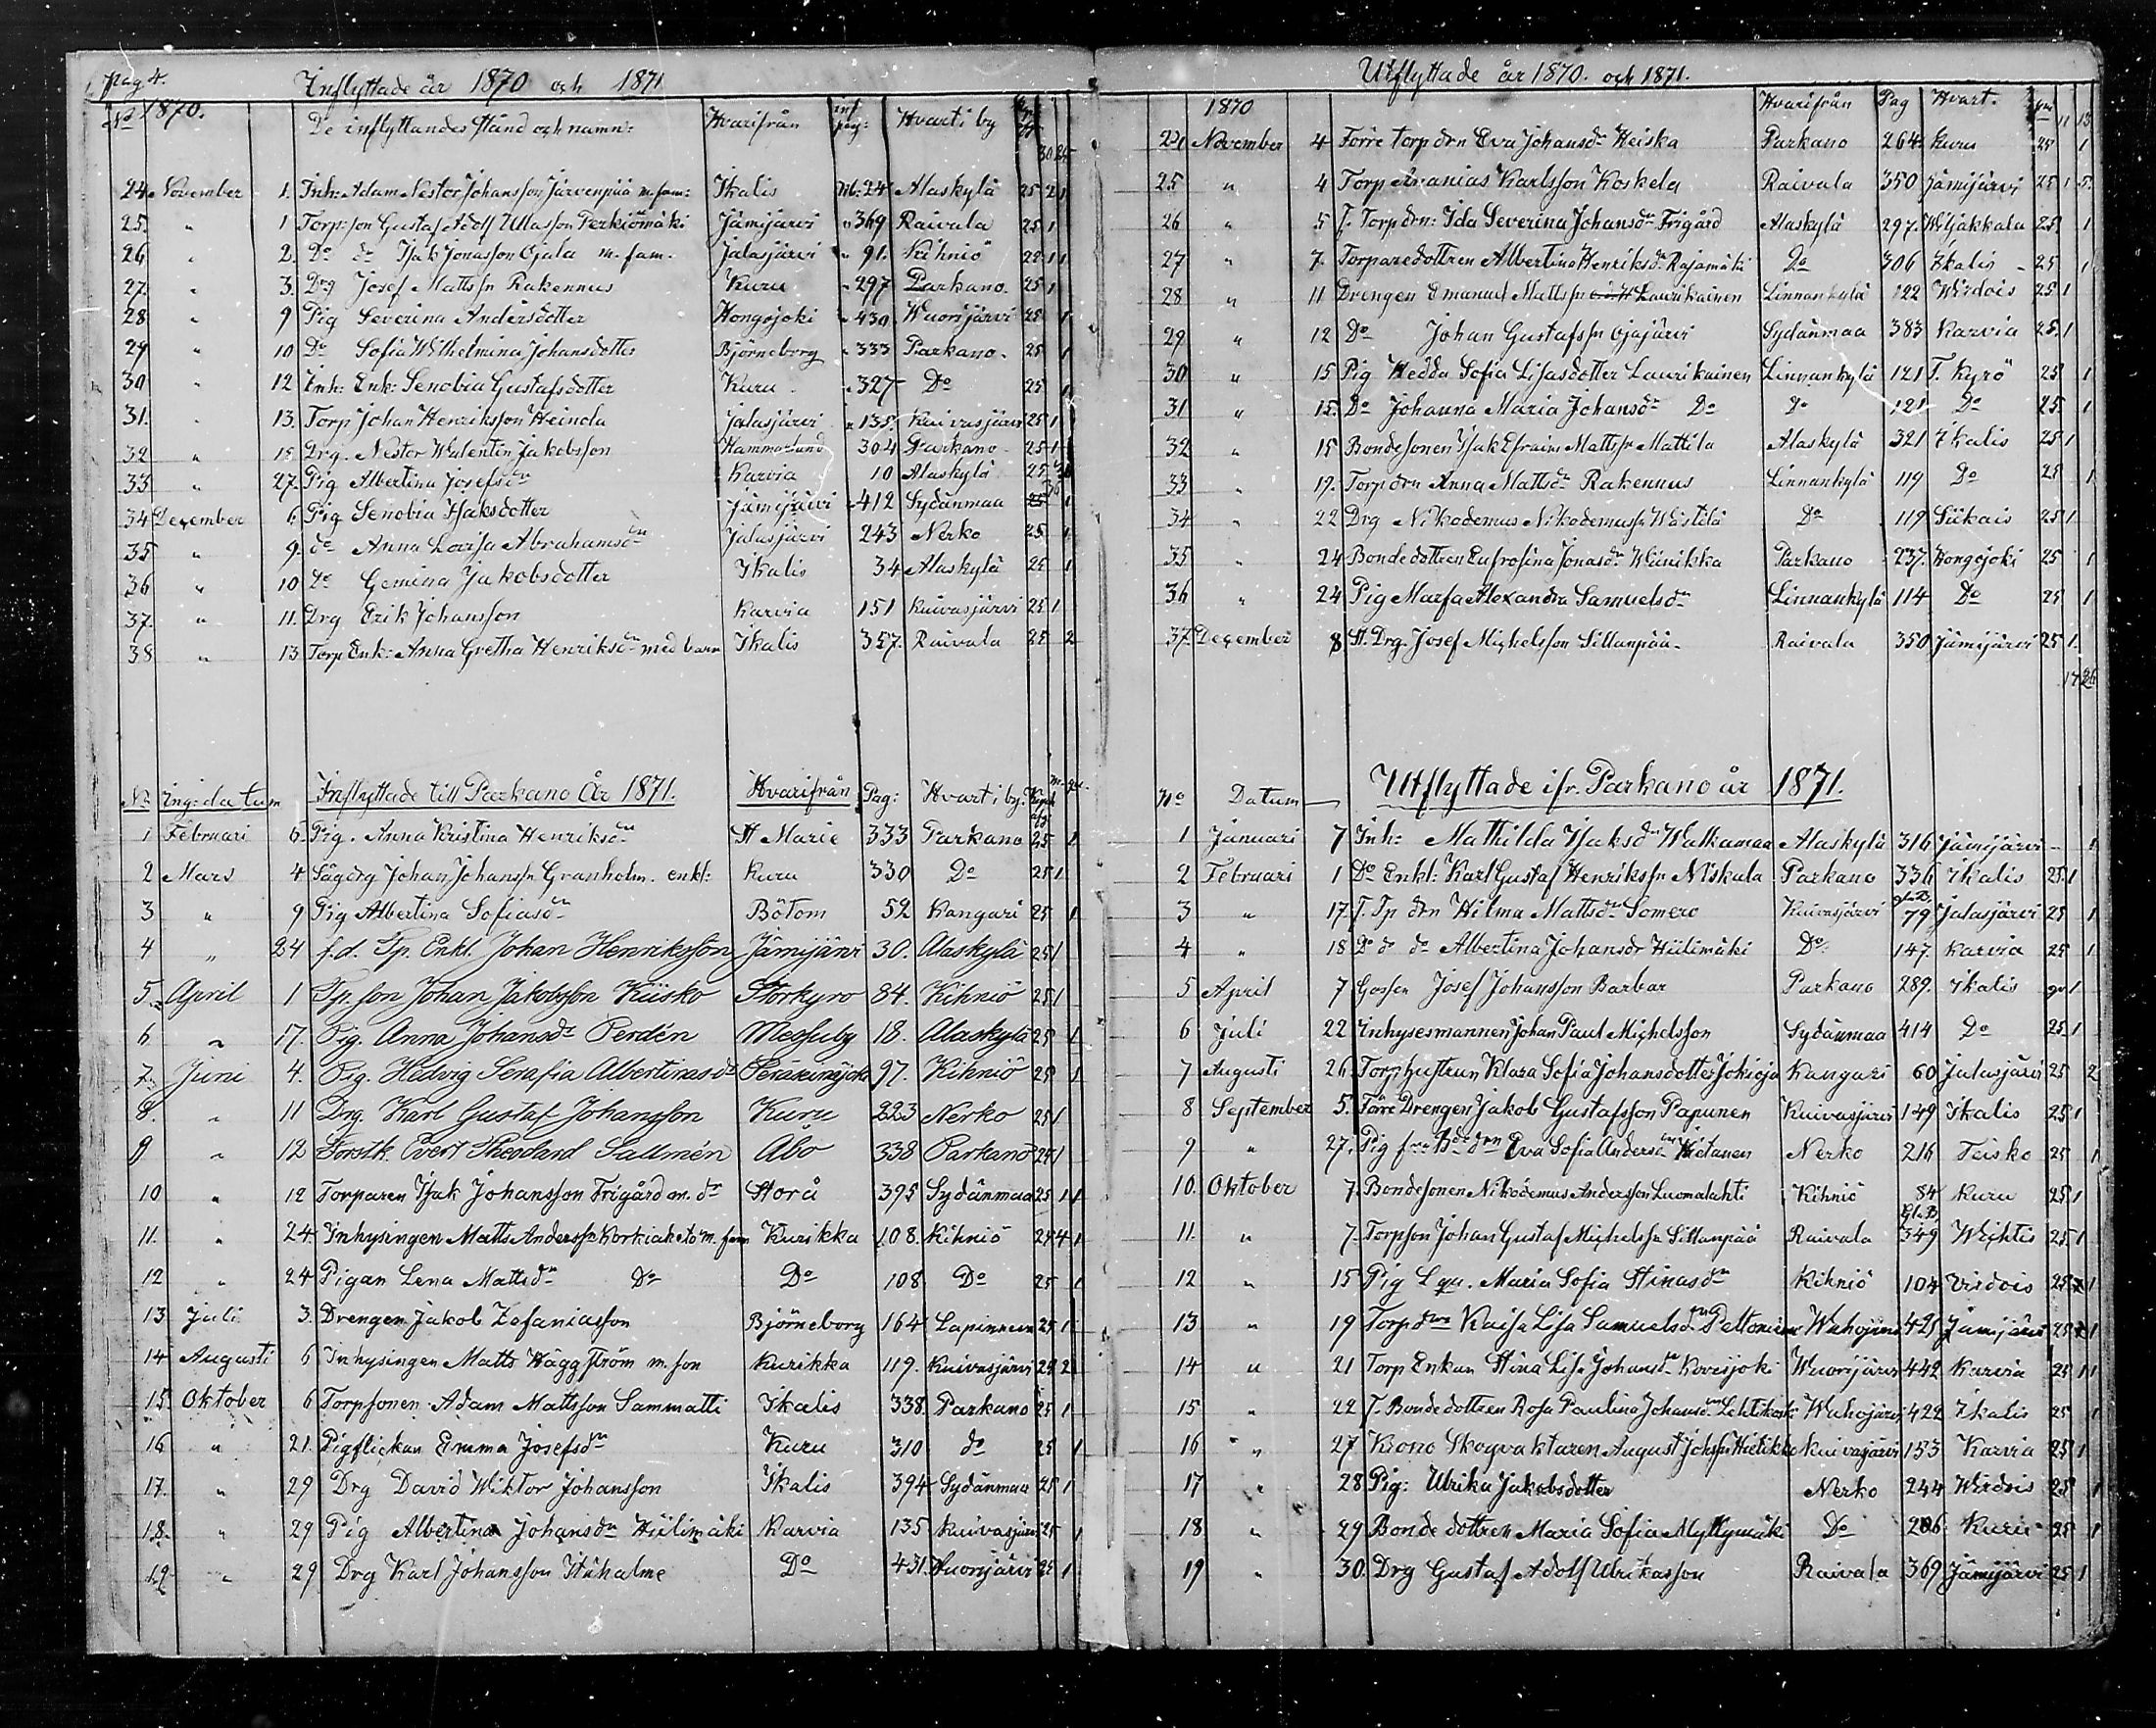 Pag 4. Inflyttade år 1870 och 1871
No 1870. De inflyttandes stånd och namn: Hvarifrån inf pag: Hvart i by
30 25
24 November 1. Inh: Adam Nestor Johansson Järvenpää m. fam: Ikalis 24 Alaskylä 25 2 1
25. " 1 Torp: son Gustaf Adolf Ullasson Perkiömäki Jämijärvi " 369 Raivala 25 1
26 " 2. Do do Isak Jonasson Ojala m. fam. Jalasjärvi " 91. Kihniö 25 1 1
27. " 3. Drg Josef Mattsson Rakennus Kuru " 297 Parkano. 25 1
28 " 9 Pig Severina Andersdotter Hongojoki " 430 Wuorijärvi 25 1
29 " 10 Do Sofia Wilhelmina Johansdotter Björneborg " 333 Parkano. 25 1
30 " 12 Inh: Enk: Senobia Gustafsdotter Kuru " 327 Do 25 1
31. " 13. Torp Johan Henriksson Heinola Jalasjärvi " 135. Kuivasjärvi 25 1
32 " 15 Drg. Nestor Walentin Jakobsson Hammarlund 304 Parkano 25 1
33 " 27. Pig Albertina Josefsdr Karvia 10 Alaskylä 25
34 December 6. Pig Senobia Isaksdotter Jämijärvi 412 Sydänmaa 25 1
35 " 9. do Anna Lovisa Abrahamsdr Jalasjärvi 243 Nerko 25 1
36 " 10 Do Gemina Jakobsdotter Ikalis 34 Alaskylä 25 1
37. " 11. Drg Erik Johansson Karvia 151 Kuivasjärvi 25 1
38 " 13 Torp Enk: Anna Gretha Henriksdr med barn Ikalis 357. Raivala 25 2
No Ing: datum Inflyttade till Parkano År 1871. Hvarifrån Pag: Hvart i by. m. qu.
1 Februari 6. Pig. Anna Kristina Henriksdr St Marie 333 Parkano 25 1
2 Mars 4 Sågdrg Johan Johansson Granholm. enkl: Kuru 330 Do 25 1
3 " 9 Pig Albertina Sofiasdr Bötom 52 Kangari 25 1
4 " 24 f.d. Tp. Enkl. Johan Henriksson Jämijärvi 30. Alaskylä 25 1
5 April 1 Tp. son Johan Jakobsson Kiisko Storkyro 84. Kihniö 25 1
6 " 17. Pig. Anna Johansdr Perdén Messuby 18. Alaskylä 25 1
7. Juni 4. Pig. Hedvig Serafia Albertinasdr Peräseinäjoki 97. Kihniö 25 1
8. " 11 Drg. Karl Gustaf Johansson Kuru 223 Nerko 25 1
9 " 12 Forstk. Evert Theodard Sallmén Åbo 338 Parkano 24 1
10 " 12 Torparen Isak Johansson Frigård m. dr Storå 395 Sydänmaa 25 1 1
11. " 24. Inhysingen Matts Andersson Korkiaketo m. fam Kurikka 108. Kihniö 24 4 1
12 " 24 Pigan Lena Mattsdr Do Do 108 Do 25 1
13 Juli 3. Drengen Jakob Zefaniasson Björneborg 164 Lapinneva 25 1
14 Augusti 6 Inhysingen Matts Häggström m. son Kurikka 119. Kuivasjärvi 25 2
15. Oktober 6 Torpsonen Adam Mattsson Sammatti Ikalis 338. Parkano 25 1
16 " 21. Pigflickan Emma Josefsdr Kuru 310 do 25 1
17. " 29 Drg David Wiktor Johansson Ikalis 394 Sydänmaa 25 1
18. " 29 Pig Albertina Johansdr Hiilimäki Karvia 135 Kuivasjärvi 25 1
19 " 29 Drg Karl Johansson Ituhalme Do 431. Wuorijärvi 25 1
Utflyttade år 1870. och 1871.
1870 Hvarifrån Pag Hvart. 11 13
24 November 4 Förre torp drn Eva Johansdr Heiska Parkano 264. Kuru 25 1
25 " 4 Torp Ananias Karlsson Koskela Raivala 350 Jämijärvi 25 1 5.
26 " 5 F. Torp drn: Ida Severina Johansdr Frigård Alaskylä 297. Wiljakkala 25 1
27 " 7. Torparedottren Albertina Henriksdr Rajamäki Do 306 Ikalis 25 1
28 " 11 Drengen Emanuel Mattsson Laurikainen Linnankylä 122 Wirdois 25 1
29 " 12 Do Johan Gustafsson Ojajärvi Sydänmaa 383 Karvia 25. 1
30 " 15 Pig Hedda Sofia Lisasdotter Laurikainen Linnankylä 121 T. Kyrö 25 1
31 " 15. Do Johanna Maria Johansdr Do Do 121 Do 25. 1
32 " 15 Bondesonen Isak Efraim Mattsson Mattila Alaskylä 321 Ikalis 25 1
33 " 19. Torp drn Anna Mattsdr Rakennus Linnankylä 119 Do 25 1
34 " 22 Drg Nikodemus Nikodemusson Wästilä Do 119 Siikais 25 1
35 " 24 Bondedottren Eufrosina Jonasdr Wiinikka Parkano 237. Hongojoki 25 1
36 " 24 Pig Marfa Alexandra Samuelsdr Linnankylä 114 Do 25 1
37. December 8 St. Drg. Josef Michelsson Sillanpää. Raivala 350 Jämijärvi 25 1.
17 26
No Datum Utflyttade ifr. Parkano år 1871.
1 Januari 7 Inh: Mathilda Isaksdr Walkamaa Alaskylä 316 Jämijärvi - 1
2 Februari 1 Do Enkl: Karl Gustaf Henriksson Niskala Parkano 336 Ikalis 25. 1
3 " 17. F. Tp drn Hilma Mattsdr Somero Kuivasjärvi 79 Jalasjärvi 25 1
4 " 18 Do do do Albertina Johansdr Hiilimäki Do 147. Karvia 25 1
5 April 7 Gossen Josef Johansson Barbar Parkano 289. Ikalis 1
6 Juli 22 Inhysesmannen Johan Paul Michelsson Sydänmaa 414 Do 25 1
7 Augusti 26. Torphustrun Klara Sofia Johansdotter Jokioja Kangari 60 Jalasjärvi 25 2
8 September 5. Före Drengen Jakob Gustafsson Papunen Kuivasjärvi 149 Ikalis 25 1
9 " 27. Pig Eva Sofia Andersdr Hietanen Nerko 216 Teisko 25 1
10. Oktober 7. Bondesonen Nikodemus Andersson Luomalahti Kihniö 84 Kuru 25 1
11. " 7. Torpson Johan Gustaf Michelsson Sillanpää Raivala 349 Wichtis 25. 1
12 " 15 Pig L qu. Maria Sofia Stinasdr Kihniö 104 Virdois 25 1
13 " 19 Torp drn Kaisa Lisa Samuelsdr Peltoniemi Wahojärvi 425 Jämijärvi 25 1
14 " 21 Torp Enkan Stina Lisa Johansdr Kovesjoki Wuorijärvi 442 Karvia 25 1 1
15 " 22 F. Bondedottren Rosa Paulina Johansdr Lehtikoski Wahojärvi 422 Ikalis 25 1
16 " 27 Krono Skogvaktaren August Johsson Hietikko Kuivasjärvi 153 Karvia 25 1
17 " 28 Pig: Ulrika Jakobsdotter Nerko 244 Wirdois 25 1
18 " 29 Bonde dottren Maria Sofia Myllymäki Do 206 Kuru 25 1
19 " 30. Drg Gustaf Adolf Ulrikasson Raivala 369 Jämijärvi 25 1